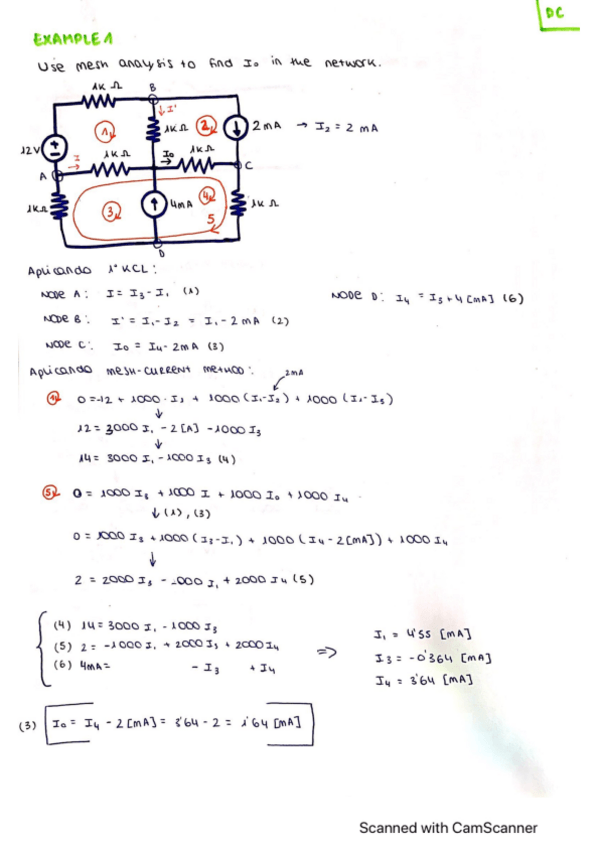 DC
EXAMPLE 1
Use mesh analysis to find I₀ in the network.
1K Ω
B
I'
1
1K Ω
2
2 mA → I₂ = 2 mA
12V
I
1K Ω
I₀
1K Ω
A
C
1KΩ
3
4mA
4
1K Ω
5
D
Aplicando 1ª KCL:
NODE A: I = I₃ - I₁ (1)
NODE D: I₄ = I₃ + 4 [mA] (6)
NODE B: I' = I₁ - I₂ = I₁ - 2 mA (2)
NODE C: I₀ = I₄ - 2mA (3)
Aplicando MESH-CURRENT METHOD:
2mA
1 0 = -12 + 1000 · I₁ + 1000 (I₁ - I₂) + 1000 (I₁ - I₃)
↓
12 = 3000 I₁ - 2 [A] - 1000 I₃
↓
14 = 3000 I₁ - 1000 I₃ (4)
5 0 = 1000 I₃ + 1000 I + 1000 I₀ + 1000 I₄
↓ (1), (3)
0 = 1000 I₃ + 1000 (I₃ - I₁) + 1000 (I₄ - 2[mA]) + 1000 I₄
↓
2 = 2000 I₃ - 1000 I₁ + 2000 I₄ (5)
(4) 14 = 3000 I₁ - 1000 I₃
(5) 2 = -1000 I₁ + 2000 I₃ + 2000 I₄
(6) 4mA = - I₃ + I₄
=>
I₁ = 4'55 [mA]
I₃ = -0'364 [mA]
I₄ = 3'64 [mA]
(3) I₀ = I₄ - 2 [mA] = 3'64 - 2 = 1'64 [mA]
Scanned with CamScanner